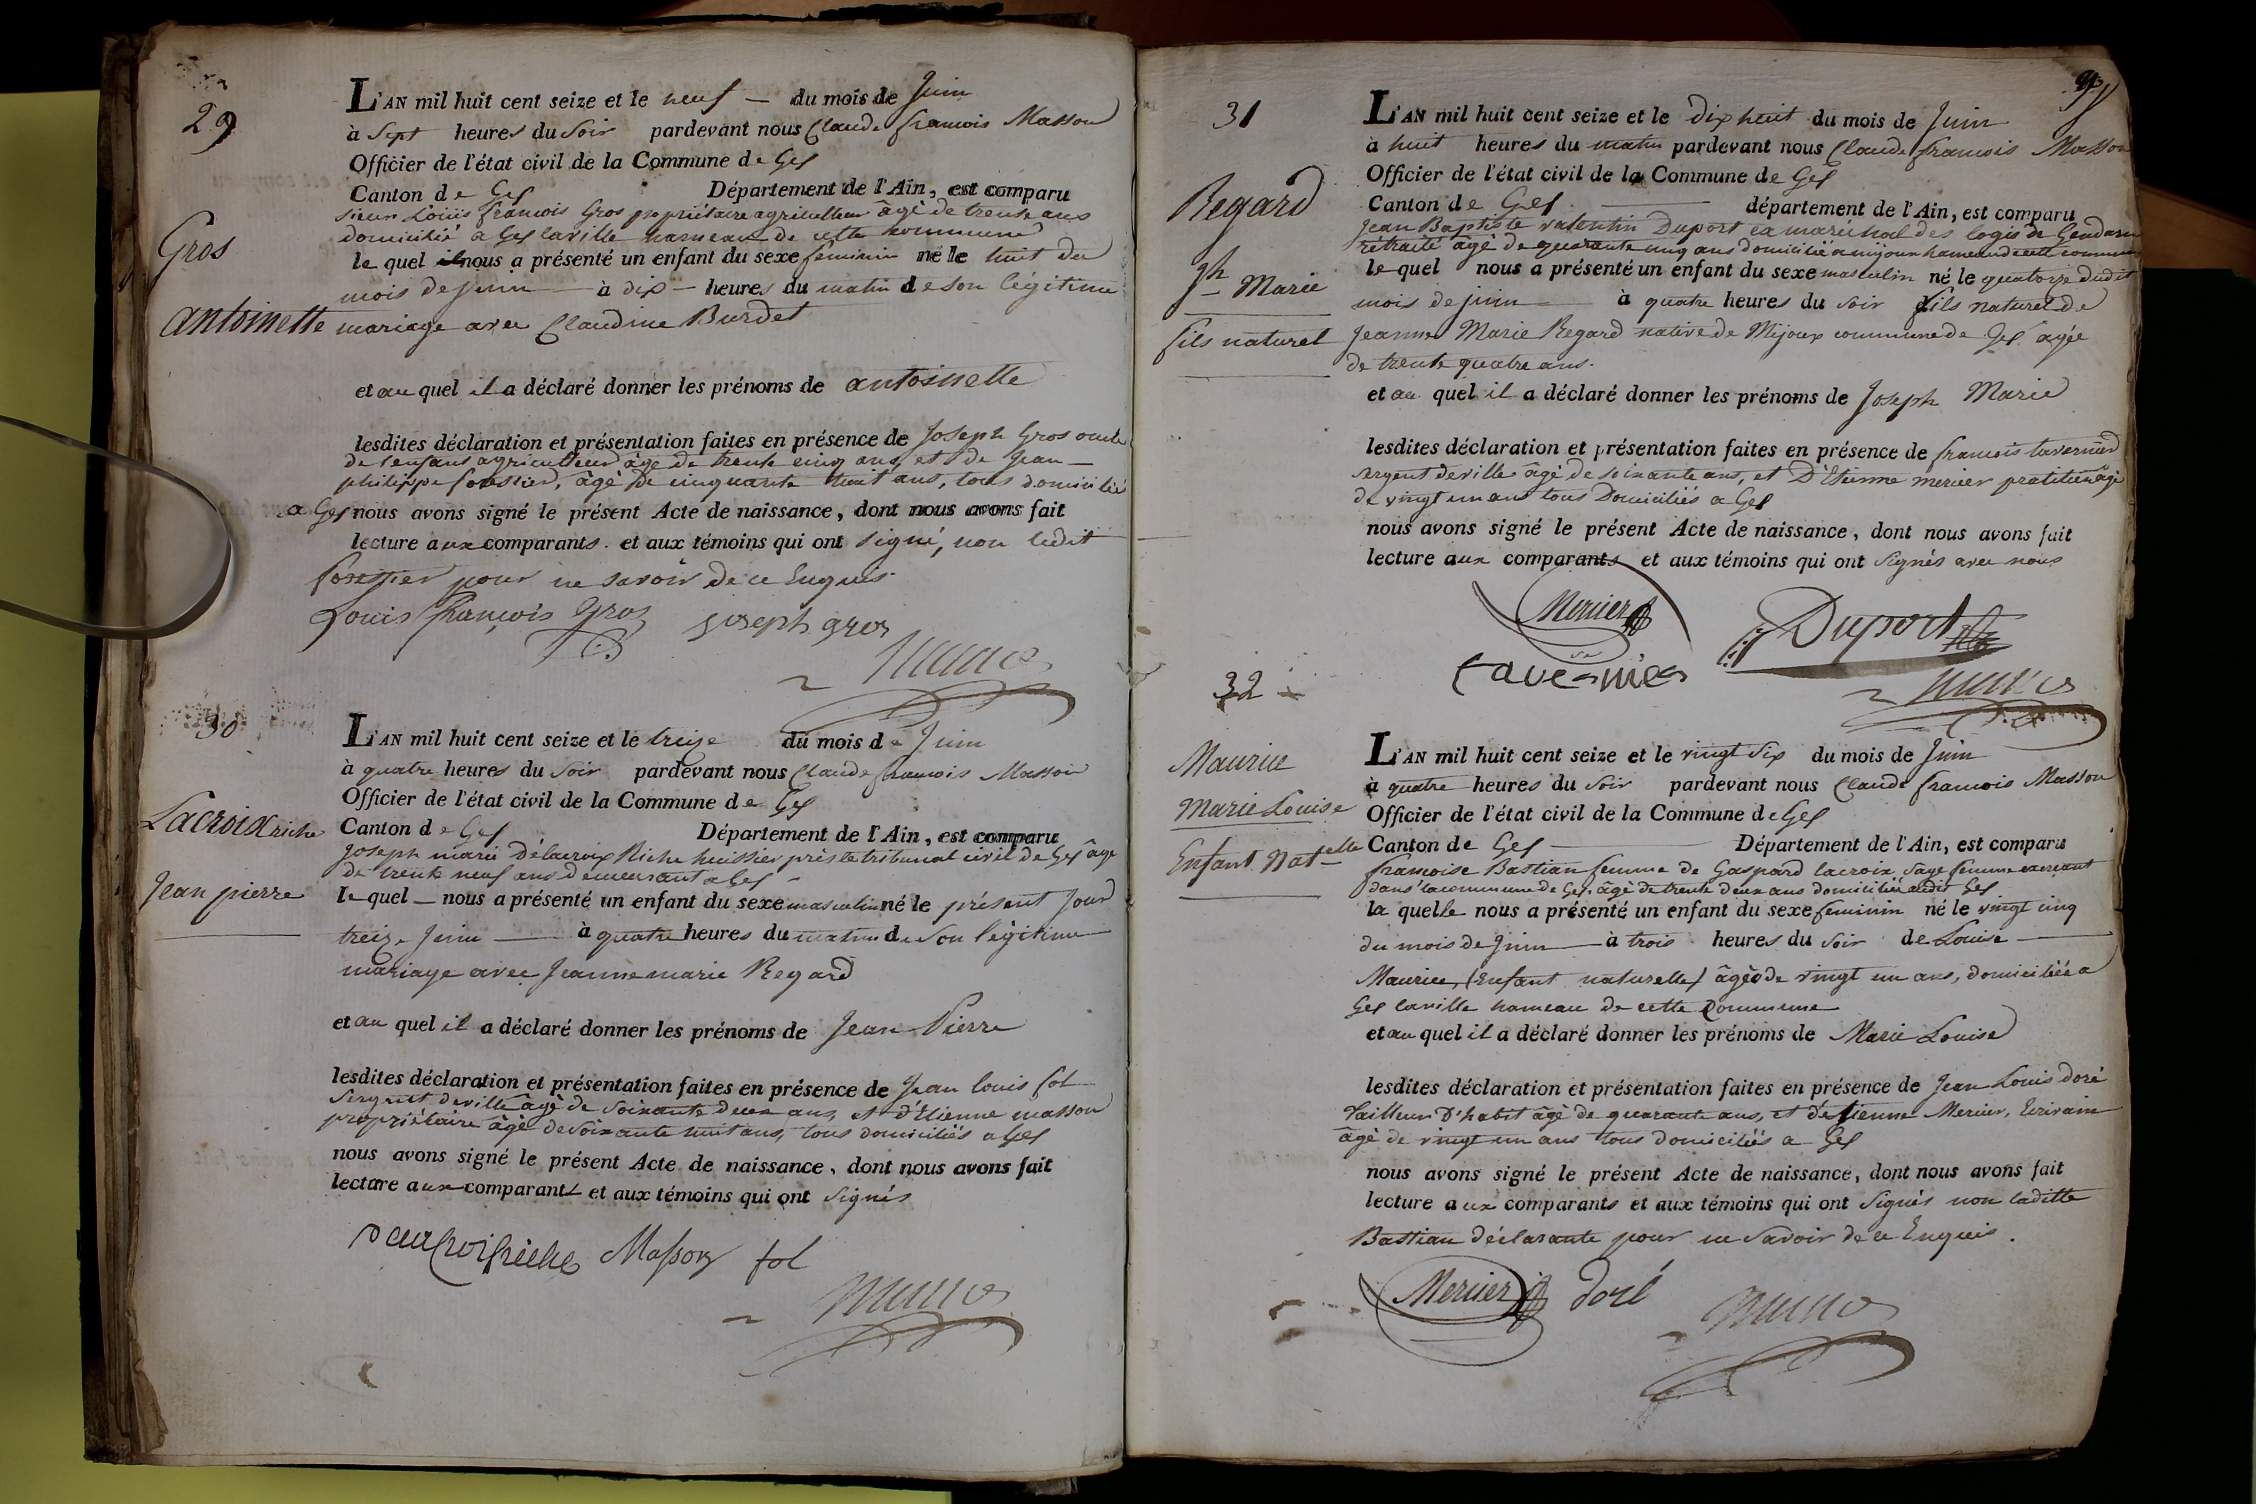 29
L'AN mil huit cent seize et le neuf — du mois de Juin
à Sept heures du Soir pardevant nous Claude francois Masson
Officier de l'état civil de la Commune de Gex
Canton de Gex Département de l'Ain, est comparu
Gros
sieur Louis francois Gros propriétaire agriculteur âgé de trente ans
domicilié a Gex laville hameau de cette commune
le quel nous a présenté un enfant du sexe feminin né le huit du
mois de juin — à dix — heures du matin de son légitime
antoinette
mariage avec Claudine Burdet
et au quel il a déclaré donner les prénoms de antoinette
lesdites déclaration et présentation faites en présence de Joseph Gros oncle
de l'enfant agriculteur âgé de trente cinq ans, et de Jean
philippe forestier, âgé de cinquante huit ans, tous domiciliés
a Gex nous avons signé le présent Acte de naissance, dont nous avons fait
lecture aux comparants et aux témoins qui ont signé, non ledit
forestier pour ne savoir de ce Enquis
Louis François Gros joseph gros
30
L'AN mil huit cent seize et le treize du mois de Juin
à quatre heures du Soir pardevant nous Claude francois Masson
Officier de l'état civil de la Commune de Gex
Lacroix riche
Canton de Gex Département de l'Ain, est comparu
Joseph marie Délacroix Riche huissier près le tribunal civil de Gex âgé
de trente neuf ans demeurant a Gex
Jean pierre
le quel — nous a présenté un enfant du sexe masculin né le présent Jour
treize Juin — à quatre heures du matin de son légitime
mariage avec Jeanne marie Regard
et au quel il a déclaré donner les prénoms de Jean Pierre
lesdites déclaration et présentation faites en présence de Jean louis fol
Sergent deville âgé de soixante deux ans, et d'Etienne masson
propriétaire âgé de soixante huit ans, tous domiciliés a Gex
nous avons signé le présent Acte de naissance, dont nous avons fait
lecture aux comparants et aux témoins qui ont signés
Masson fol
31
L'AN mil huit cent seize et le dix huit du mois de Juin
à huit heures du matin pardevant nous Claude francois Masson
Officier de l'état civil de la Commune de Gex
Regard
Canton de Gex — département de l'Ain, est comparu
Jean Baptiste valentin Duport ex maréchal des logis de Gendarm
retraité âgé de quarante cinq ans domicilié a mijoux hameau de cette commune
jh Marie
le quel nous a présenté un enfant du sexe masculin né le quatorze dudit
mois de juin — à quatre heures du soir fils naturel de
fils naturel
Jeanne Marie Regard native de Mijoux commune de Gex agée
de trente quatre ans.
et au quel il a déclaré donner les prénoms de Joseph Marie
lesdites déclaration et présentation faites en présence de francois tavernier
sergent deville âgé de soixante ans, et D'Etienne mercier praticien âgé
de vingt un ans tous Domiciliés a Gex
nous avons signé le présent Acte de naissance, dont nous avons fait
lecture aux comparants et aux témoins qui ont signés avec nous
Mercier Duport
tavernier
32
L'AN mil huit cent seize et le vingt six du mois de Juin
Maurice
à quatre heures du soir pardevant nous Claude francois Masson
Marie Louise
Officier de l'état civil de la Commune de Gex
Enfant Natelle
Canton de Gex — Département de l'Ain, est comparu
francoise Bastian femme de Gaspard lacroix, sage femme exercant
dans la commune de Gex, âgé de trente deux ans domiciliée audit Gex
la quelle nous a présenté un enfant du sexe feminin né le vingt cinq
du mois de Juin — à trois heures du soir de Louise —
Maurice, (Enfant naturelle) âgée de vingt un ans, domiciliée a
Gex laville hameau de cette Commune
et au quel il a déclaré donner les prénoms de Marie Louise
lesdites déclaration et présentation faites en présence de Jean Louis doré
tailleur D'habit âgé de quarante ans, et d'etienne Mercier, Ecrivain
âgé de vingt un ans tous domiciliés a Gex
nous avons signé le présent Acte de naissance, dont nous avons fait
lecture aux comparants et aux témoins qui ont Signés non laditte
Bastian déclarante pour ne savoir de ce Enquis.
Mercier doré